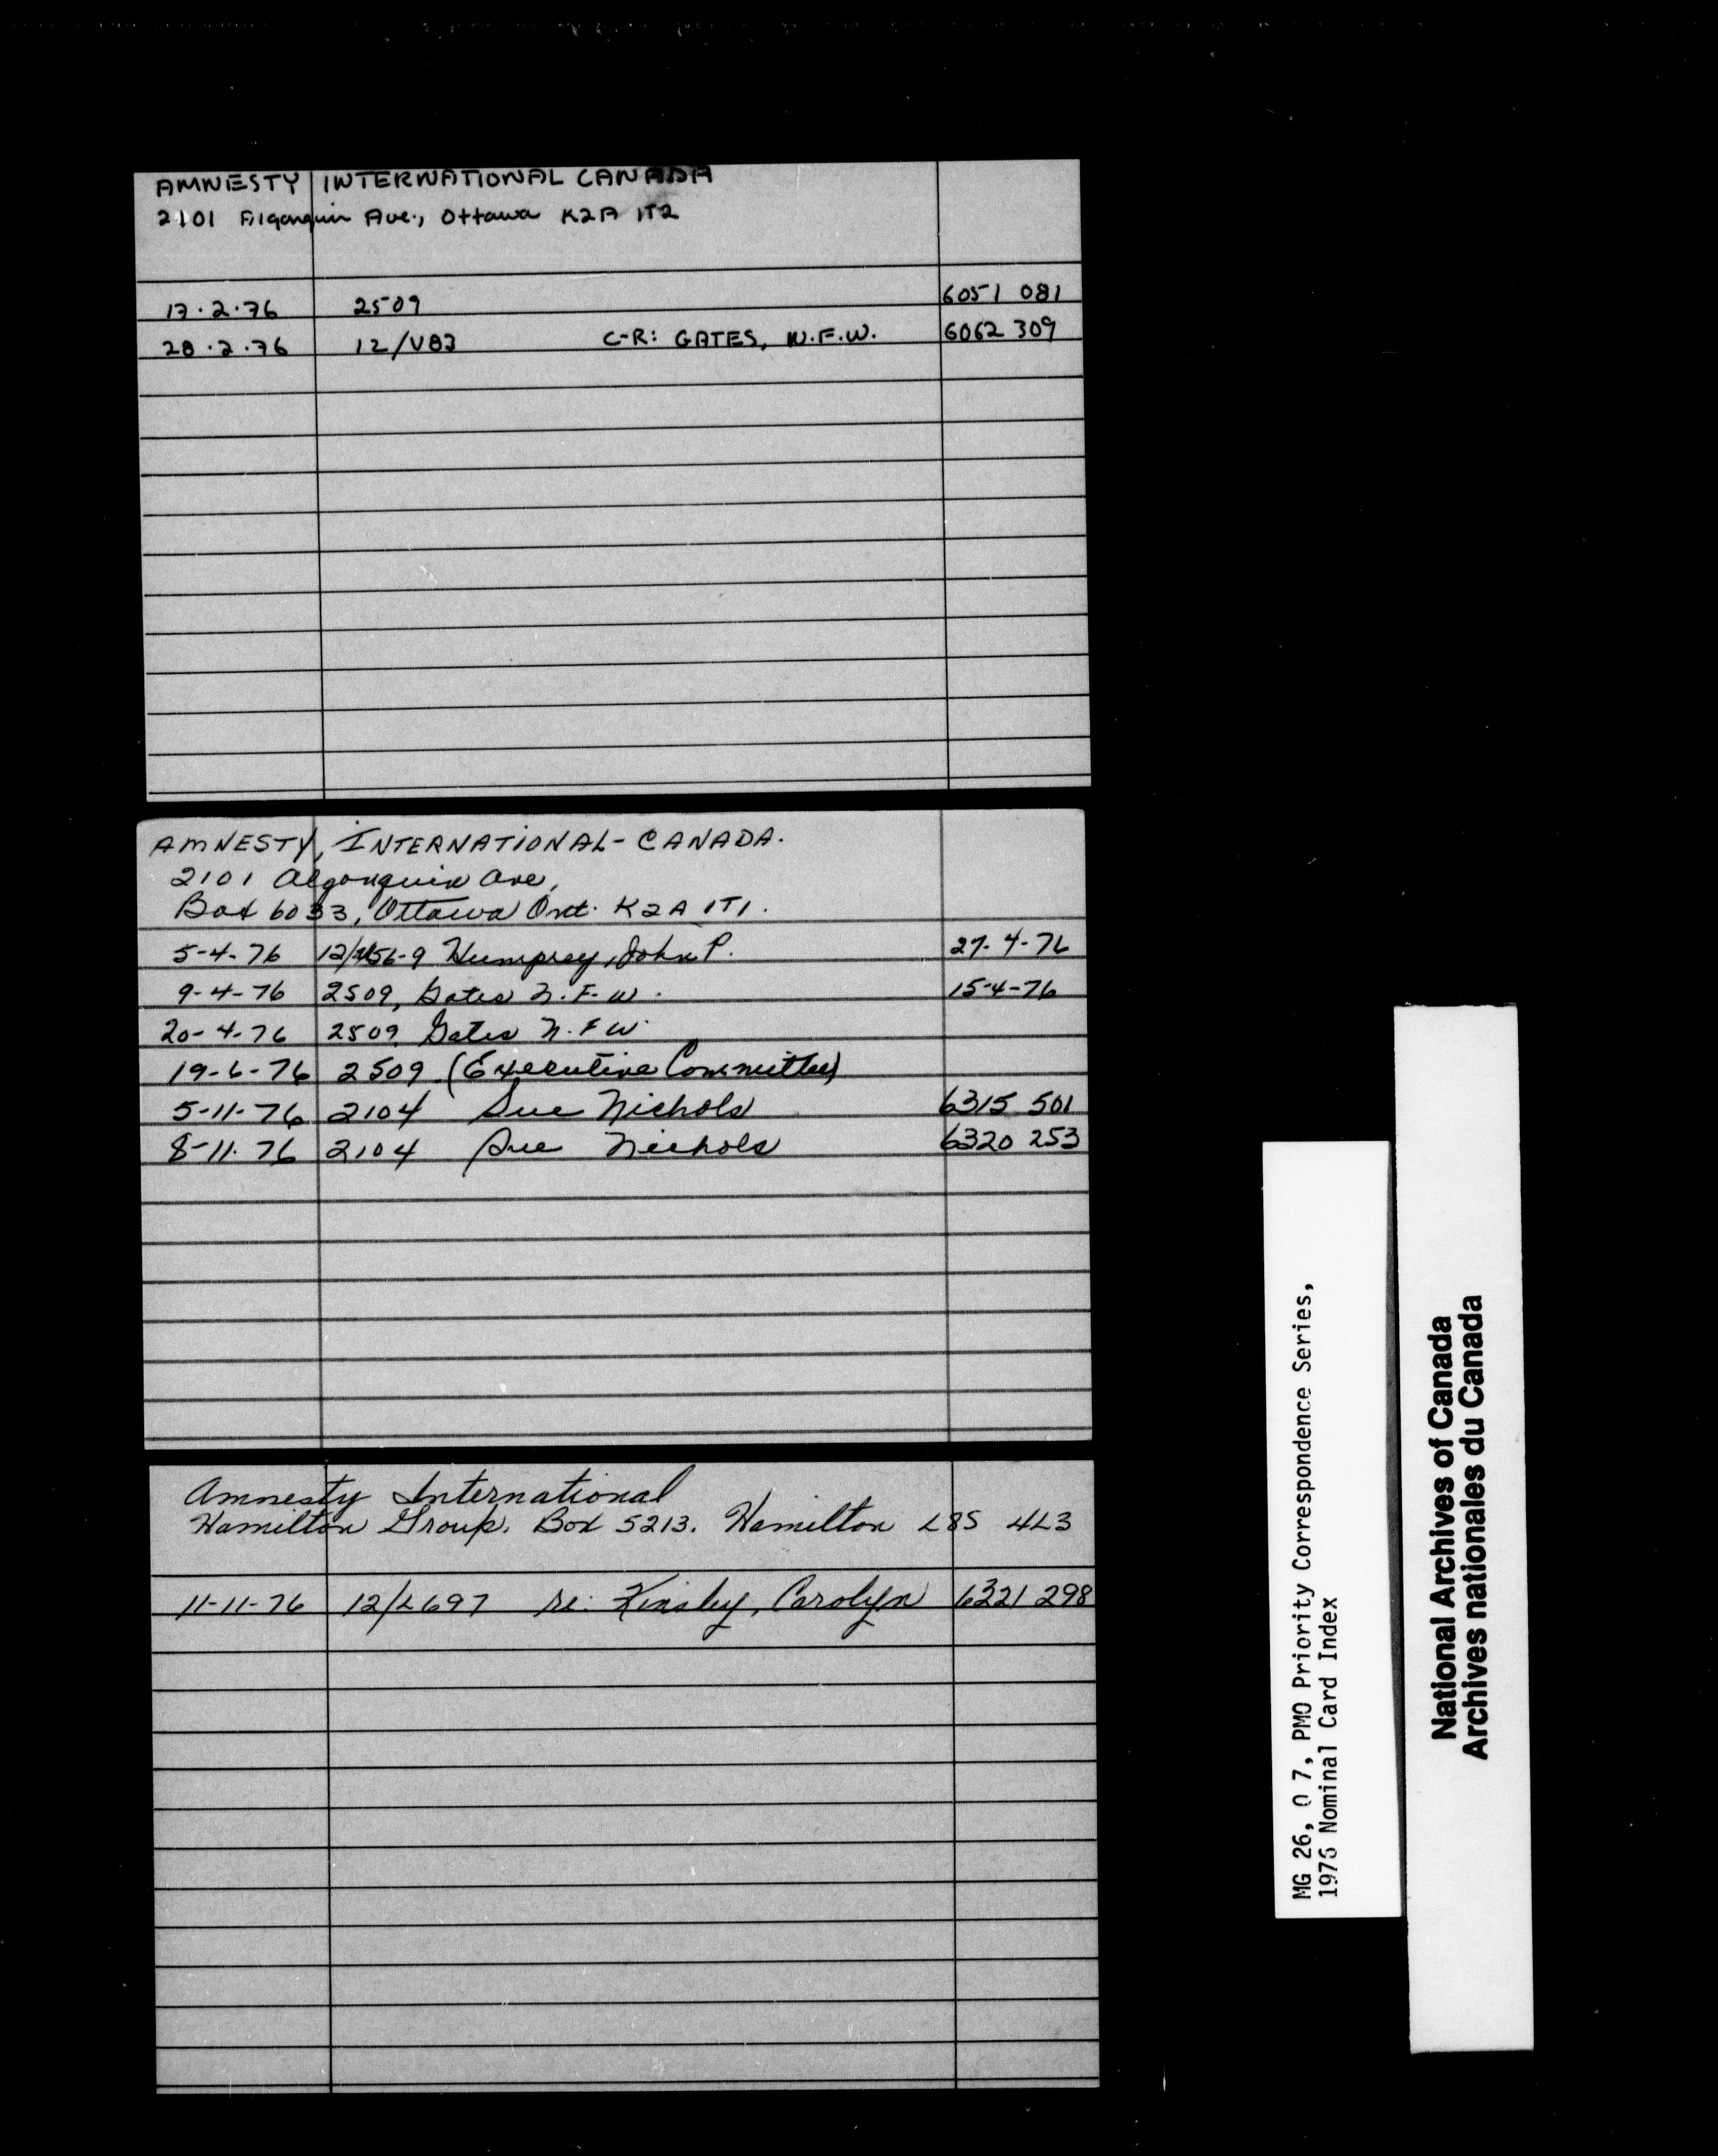 AMNESTY INTERNATIONAL CANADA
2101 Algonquin Ave., Ottawa K2A 1T2
17.2.76 2509 6051 081
28.2.76 12/V83 C-R: GATES, N.F.W. 6062 309
AMNESTY, INTERNATIONAL-CANADA.
2101 Algonquin Ave,
Box 6033, Ottawa Ont. K2A 1T1.
5-4-76 Humprey, John P. 27-4-76
9-4-76 2509, Gates N.F.W. 15-4-76
20-4-76 2509, Gates N.F.W.
19-6-76 2509 (Executive Committee)
5-11-76 2104 Sue Nichols 6315 501
8-11-76 2104 Sue Nichols 6320 253
Amnesty International
Hamilton Group. Box 5213. Hamilton L8S 4L3
11-11-76 12/L697 re: Kinsley, Carolyn 6321 298
MG 26, O 7, PMO Priority Correspondence Series,
1976 Nominal Card Index
National Archives of Canada
Archives nationales du Canada